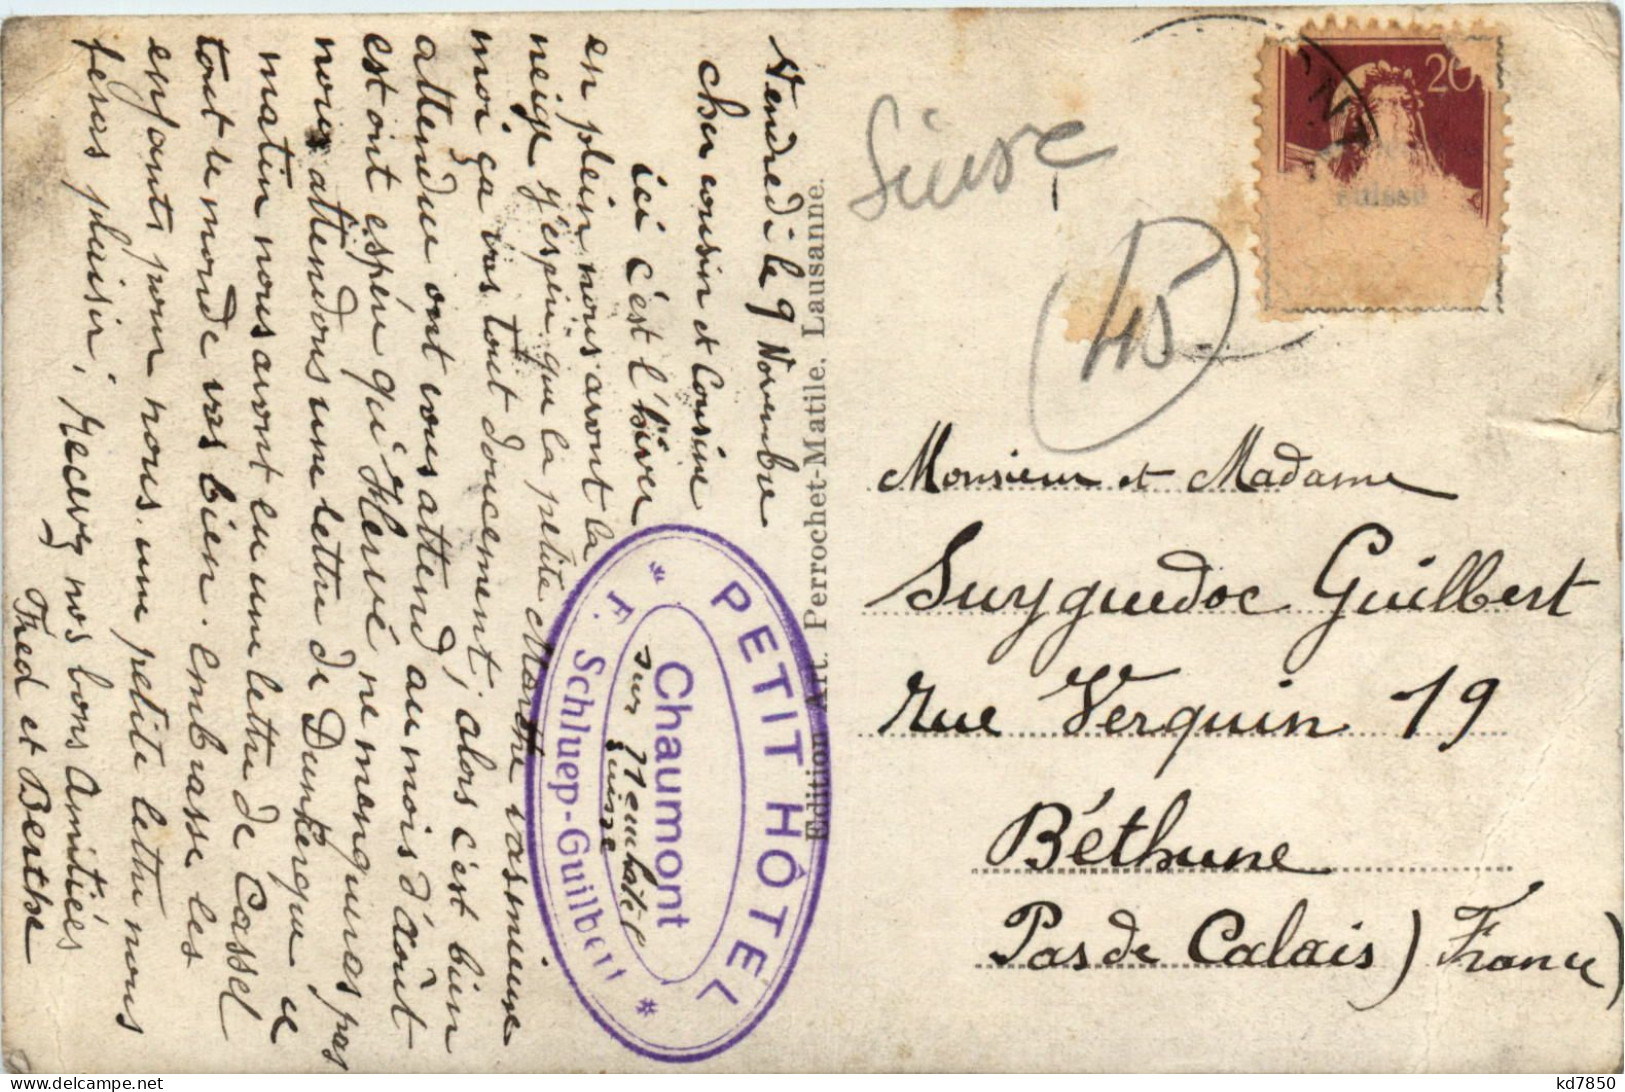 Vendredi le 9 Novembre
cher cousin et Cousine
ici c'est l'hiver
en plein nous avont la
neige j'espèr que la petite Marthe vasmieure
moi ça vas tout doucement, alors c'est bien
attendu ont vous attend au mois d'août
est ont espér qu'Hervé ne menqueras pas
nous attendons une lettre de Dunkerque ce
matin nous avont eu une lettre de Cassel
tout le monde vas bien. Embrasse les
enfants pour nous. une petite lettre nous
feras plaisir, Recevez nos bons Amitiées
Fred et Berthe
PETIT HÔTEL
Chaumont
sur Neuchâtel
Suisse
* F. Schluep-Guilbert *
Edition Art. Perrochet-Matile. Lausanne.
Suisse
45
20
Monsieur et Madame
Suyguedoc Guilbert
rue Verquin 19
Béthune
Pas de Calais) France)
kd7850